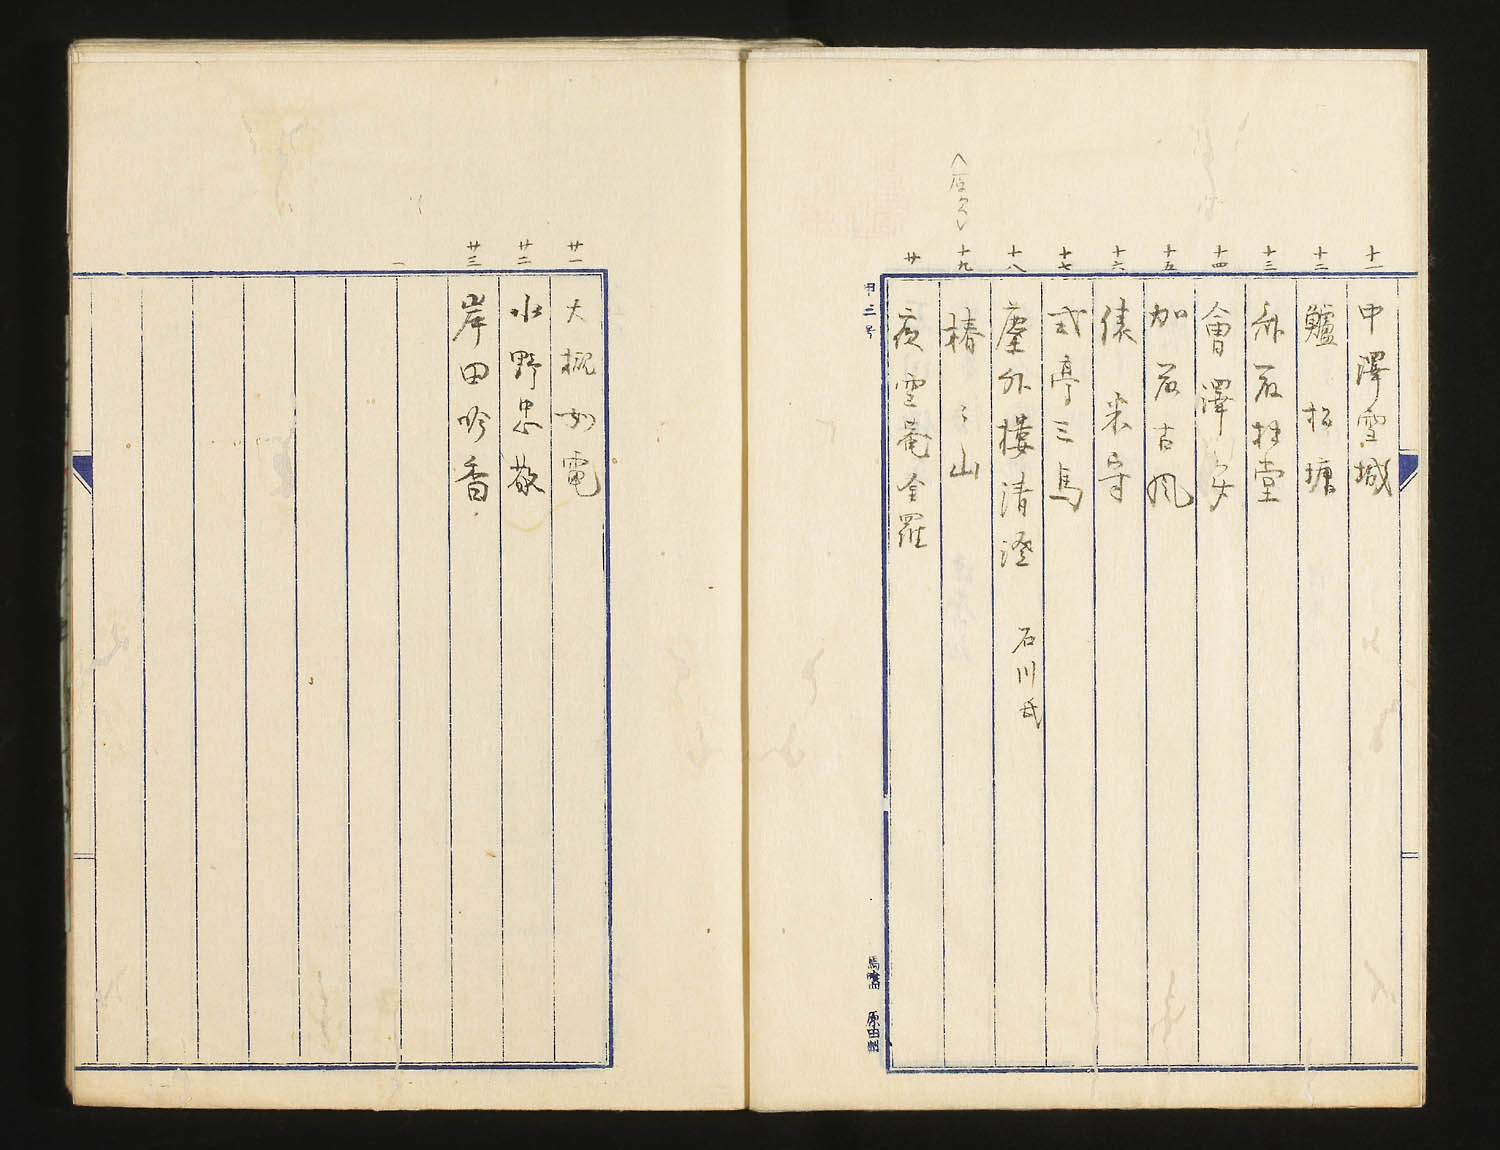 十一 中澤雪城
十二 鱸松塘
十三
十四 會澤安
十五 加茂古風
十六 俵米守
十七 式亭三馬
十八 塵外樓清澄 石川氏
十九 椿々山
廿 夜雪菴金羅
甲三号
馬喰四 原田製
廿一 大槻如電
廿二 水野忠敬
廿三 岸田吟香